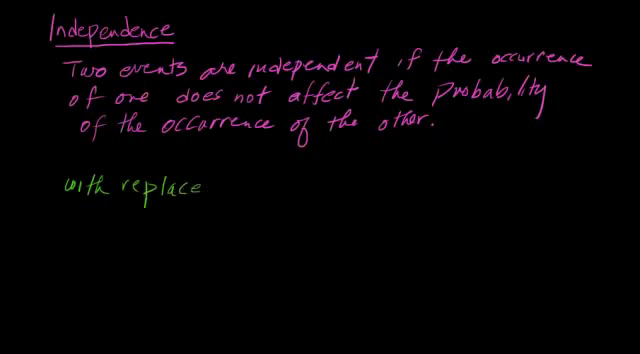 Independence
Two events are independent if the occurrence
of one does not affect the Probability
of the occurrence of the other.
with replace